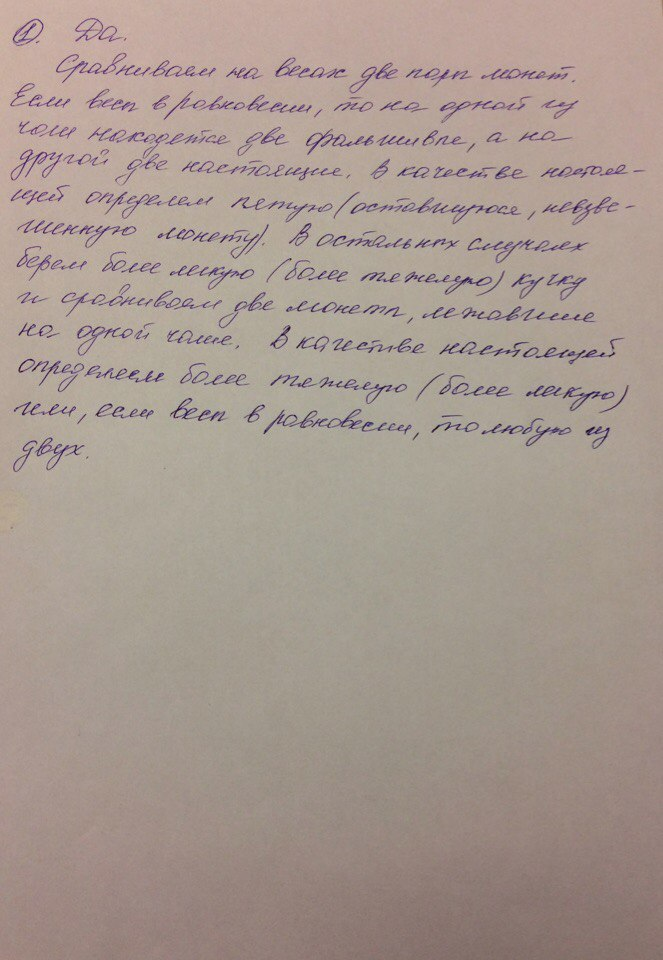 1. Да.
Сравниваем на весах две пары монет.
Если весы в равновесии, то на одной из
чаш находятся две фальшивые, а на
другой две настоящие. В качестве настоя-
щей определяем пятую (оставшуюся, невзве-
шенную монету). В остальных случаях
берем более легкую (более тяжелую) кучку
и сравниваем две монеты, лежавшие
на одной чаше. В качестве настоящей
определяем более тяжелую (более легкую)
или, если весы в равновесии, то любую из
двух.